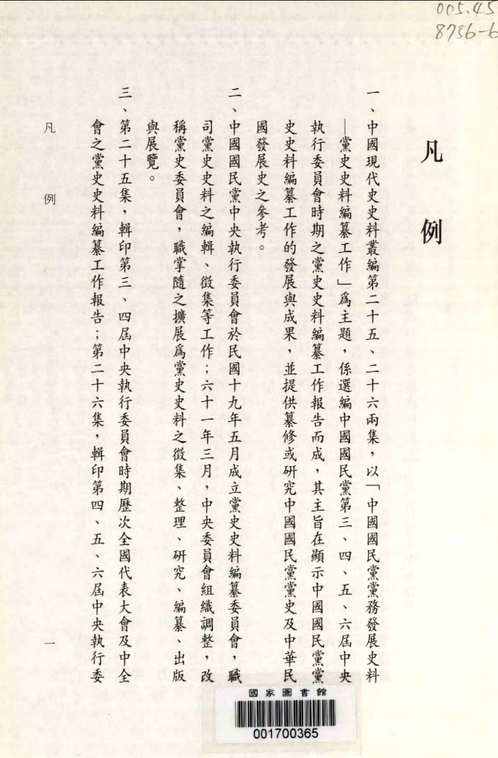 005.45
8736-6
凡例
一、中國現代史史料叢編第二十五、二十六兩集，以「中國國民黨黨務發展史料
—黨史史料編纂工作」爲主題，係選編中國國民黨第三、四、五、六屆中央
執行委員會時期之黨史史料編纂工作報告而成，其主旨在顯示中國國民黨黨
史史料編纂工作的發展與成果，並提供纂修或研究中國國民黨黨史及中華民
國發展史之參考。
二、中國國民黨中央執行委員會於民國十九年五月成立黨史史料編纂委員會，職
司黨史史料之編輯、徵集等工作；六十一年三月，中央委員會組織調整，改
稱黨史委員會，職掌隨之擴展爲黨史史料之徵集、整理、研究、編纂、出版
與展覽。
三、第二十五集，輯印第三、四屆中央執行委員會時期歷次全國代表大會及中全
會之黨史史料編纂工作報告；第二十六集，輯印第四、五、六屆中央執行委
凡例
一
國家圖書館
001700365